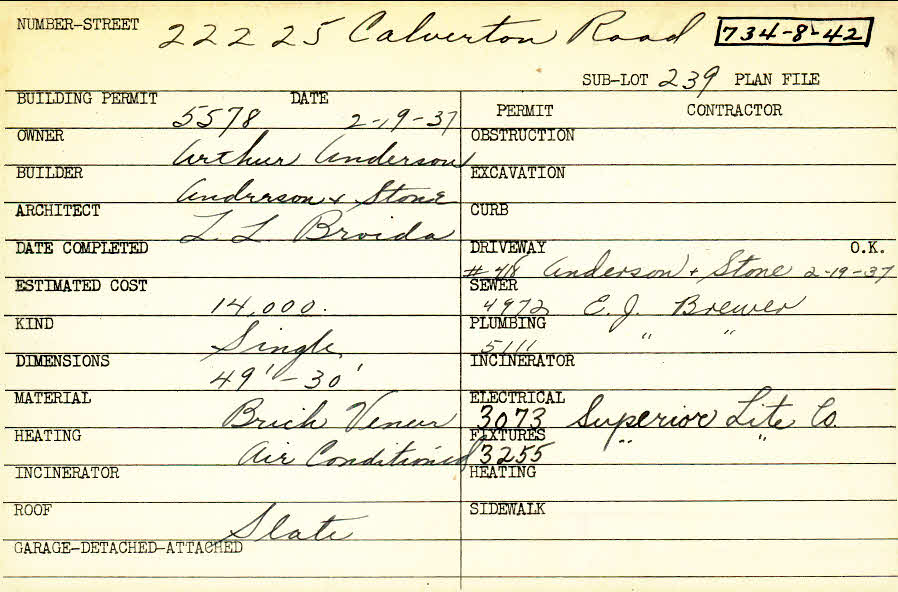 NUMBER-STREET 22225 Calverton Road 734-8-42
SUB-LOT 239 PLAN FILE
BUILDING PERMIT 5578 DATE 2-19-37
PERMIT CONTRACTOR
OWNER Arthur Anderson
OBSTRUCTION
BUILDER Anderson + Stone
EXCAVATION
ARCHITECT L. L. Broida
CURB
DATE COMPLETED
DRIVEWAY O.K.
#48 Anderson + Stone 2-19-37
ESTIMATED COST 14,000.
SEWER 4972 E. J. Brewer
KIND Single
PLUMBING 5111 " "
DIMENSIONS 49' - 30'
INCINERATOR
MATERIAL Brick Veneer
ELECTRICAL 3073 Superior Lite Co.
HEATING Air Conditioned
FIXTURES 3255 " "
INCINERATOR
HEATING
ROOF Slate
SIDEWALK
GARAGE-DETACHED-ATTACHED